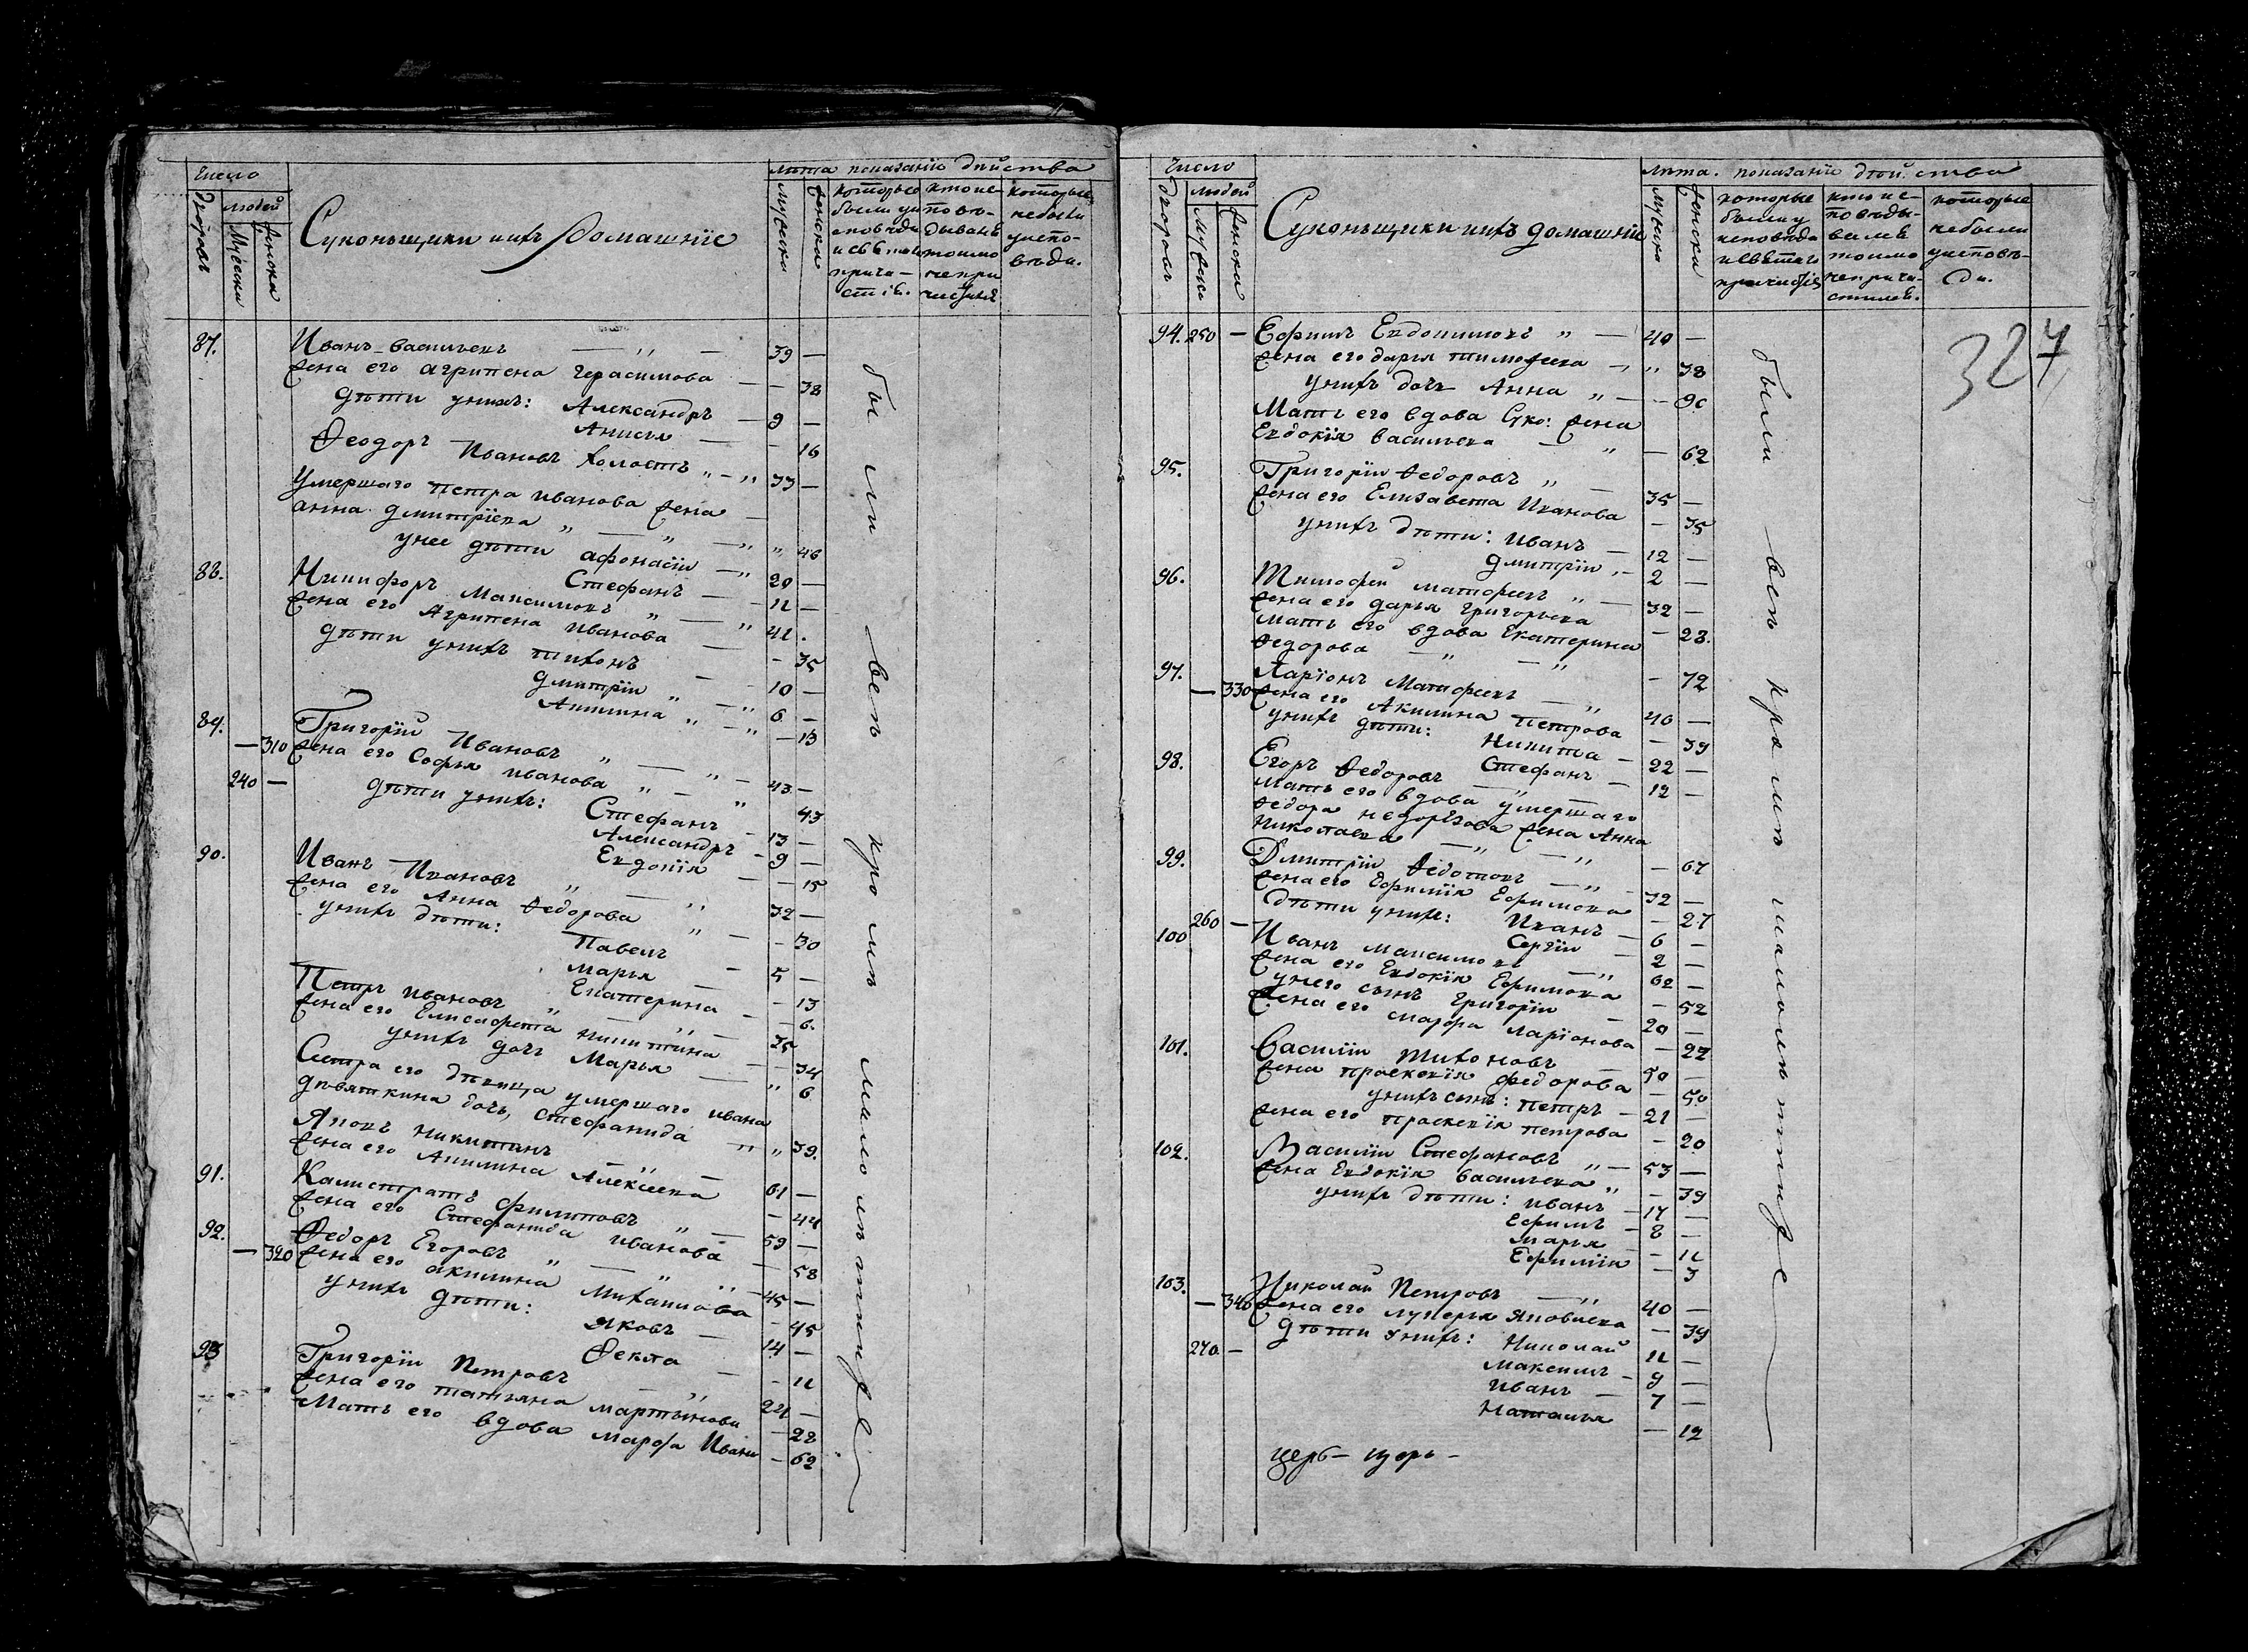 Число
Дворовъ
людей
Мужеска
Женска
Суконьщики ихъ домашнїе
лѣта показанїе дѣйства
Мужска
Женска
которые
были у и
исповѣди
причи-
кто ис-
повѣ-
дывалъ
тоимо
непри
которые
небыли
уиспо-
вѣди.
87.
Иванъ Васильевъ — „ — 39 —
Жена его Агрипена Герасимова — — 38
дѣти унихъ: Александръ — 9 —
Анисья — — 16
Феодоръ Ивановъ холостъ „ — „ 33 —
Умершаго Петра Иванова жена —
Анна дмитрїева „ — „ — „ „ 46
унее дѣти афонасїи — „ 20 —
Стефанъ — — 11 —
88.
Никифоръ Максимовъ „ — „ 41.
Жена его Агрипена Иванова — — 35
дѣти унихъ тихонъ — — 10 —
дмитрїи „ — „ 6 —
Акилина „ — „ — 13
89.
Григорїй Ивановъ „ — „ — 43 —
— 310 Жена его Софья Иванова „ — „ 43
240 — дѣти унихъ: Стефанъ — 13 —
Александръ — 9 —
Евдокїя — — 15
90.
Иванъ Ивановъ „ — „ 32 —
Жена его Анна Федорова „ — — 30
унихъ дѣти: Павелъ — 5 —
Марья — — 13
Екатерина — — 6.
Петръ Ивановъ „ — „ — 35
Жена его Елисафета Никитина — — 34
унихъ дочь Марья — „ 6
Сестра его дѣвица умершаго Ивана
дѣвяткина дочь, Стефанида — „ „ 39.
Яковъ Никитинъ — „ — 61 —
Жена его Акилина Алексѣева — 44
91.
Калистратъ Филиповъ „ — 59 —
Жена его Стефанида Иванова — 58
92.
Федоръ Егоровъ „ — „ „ 45 —
— 320 Жена его акилина Михаилова — 45
унихъ дѣти: Яковъ — 14 —
Фекла — — 11
93
Григорїи Петровъ — „ 24 —
Жена его татьяна мартынова — 22
Мать его вдова Марфа Ивано — 62
были всѣ кромѣ малолѣтних
Число
Дворовъ
людей
Мужеск
Женска
Суконьщики ихъ домашнїе
Лѣта. показанїе дѣй ства
Мужеск
Женска
которые
были у
исповѣди
исвѣтаго
причастїя
кто ис-
повѣды-
валсь
тоимо
неприча-
стилсь.
которые
небыли
уисповѣ-
ди.
327
94. 250 — Ефимъ Евдокимовъ „ — 40 —
Жена его дарья тимофеева — „ „ 38
унихъ дочь Анна „ — — 9
Мать его вдова Суко: жена
Евдокїя Васильева — „ — 62
95.
Григорїи Федоровъ „ — 35 —
Жена его Елизавета Иванова — 35
унихъ дѣти: Иванъ — 12 —
дмитрїи „ — 2 —
96.
Тимофей матфеевъ „ — 32 —
Жена его дарья григорьева — 28.
Мать его вдова Екатерина
Федорова — „ — „ — 72
97.
Ларїонъ Матфеевъ — „ 40 —
— 330 Жена его Акилина Петрова — 39
унихъ дѣти: Никита — 22 —
Стефанъ — 12 —
98.
Егоръ Федоровъ — „
Мать его вдова умершаго
Федора недорѣзова жена Анна
Николаева — „ — „ — 67
99.
Дмитрїи Федотовъ — „ — 32 —
Жена его Ефимїя Ефимова — 27
дѣти унихъ: Иванъ — 6 —
260 — Сергїи — 2 —
100
Иванъ Максимовъ — „ 62 —
Жена его Евдокїя Ефимова — 52
унего сынъ Григорїи — 20 —
Жена его марфа ларїонова — 22
101.
Василїи Тихоновъ — 50 —
Жена праскевїя федорова — 50
унихъ сынъ: Петръ — 21 —
Жена его праскевїя петрова — 20
102.
Василїи Стефановъ „ — 53 —
Жена Евдокїя Васильева „ — 39
унихъ дѣти: Иванъ — 17 —
Ефимъ — 8 —
Марья — 11
Ефимїя — 3
103.
Николай Петровъ — „ 40 —
— 340 Жена его лукерья Яковлева — 39
дѣти унихъ: Николай 11 —
270. — Максимъ — 9 —
Иванъ — 7 —
Наталья — 12
были всѣ кромѣ малолѣтних